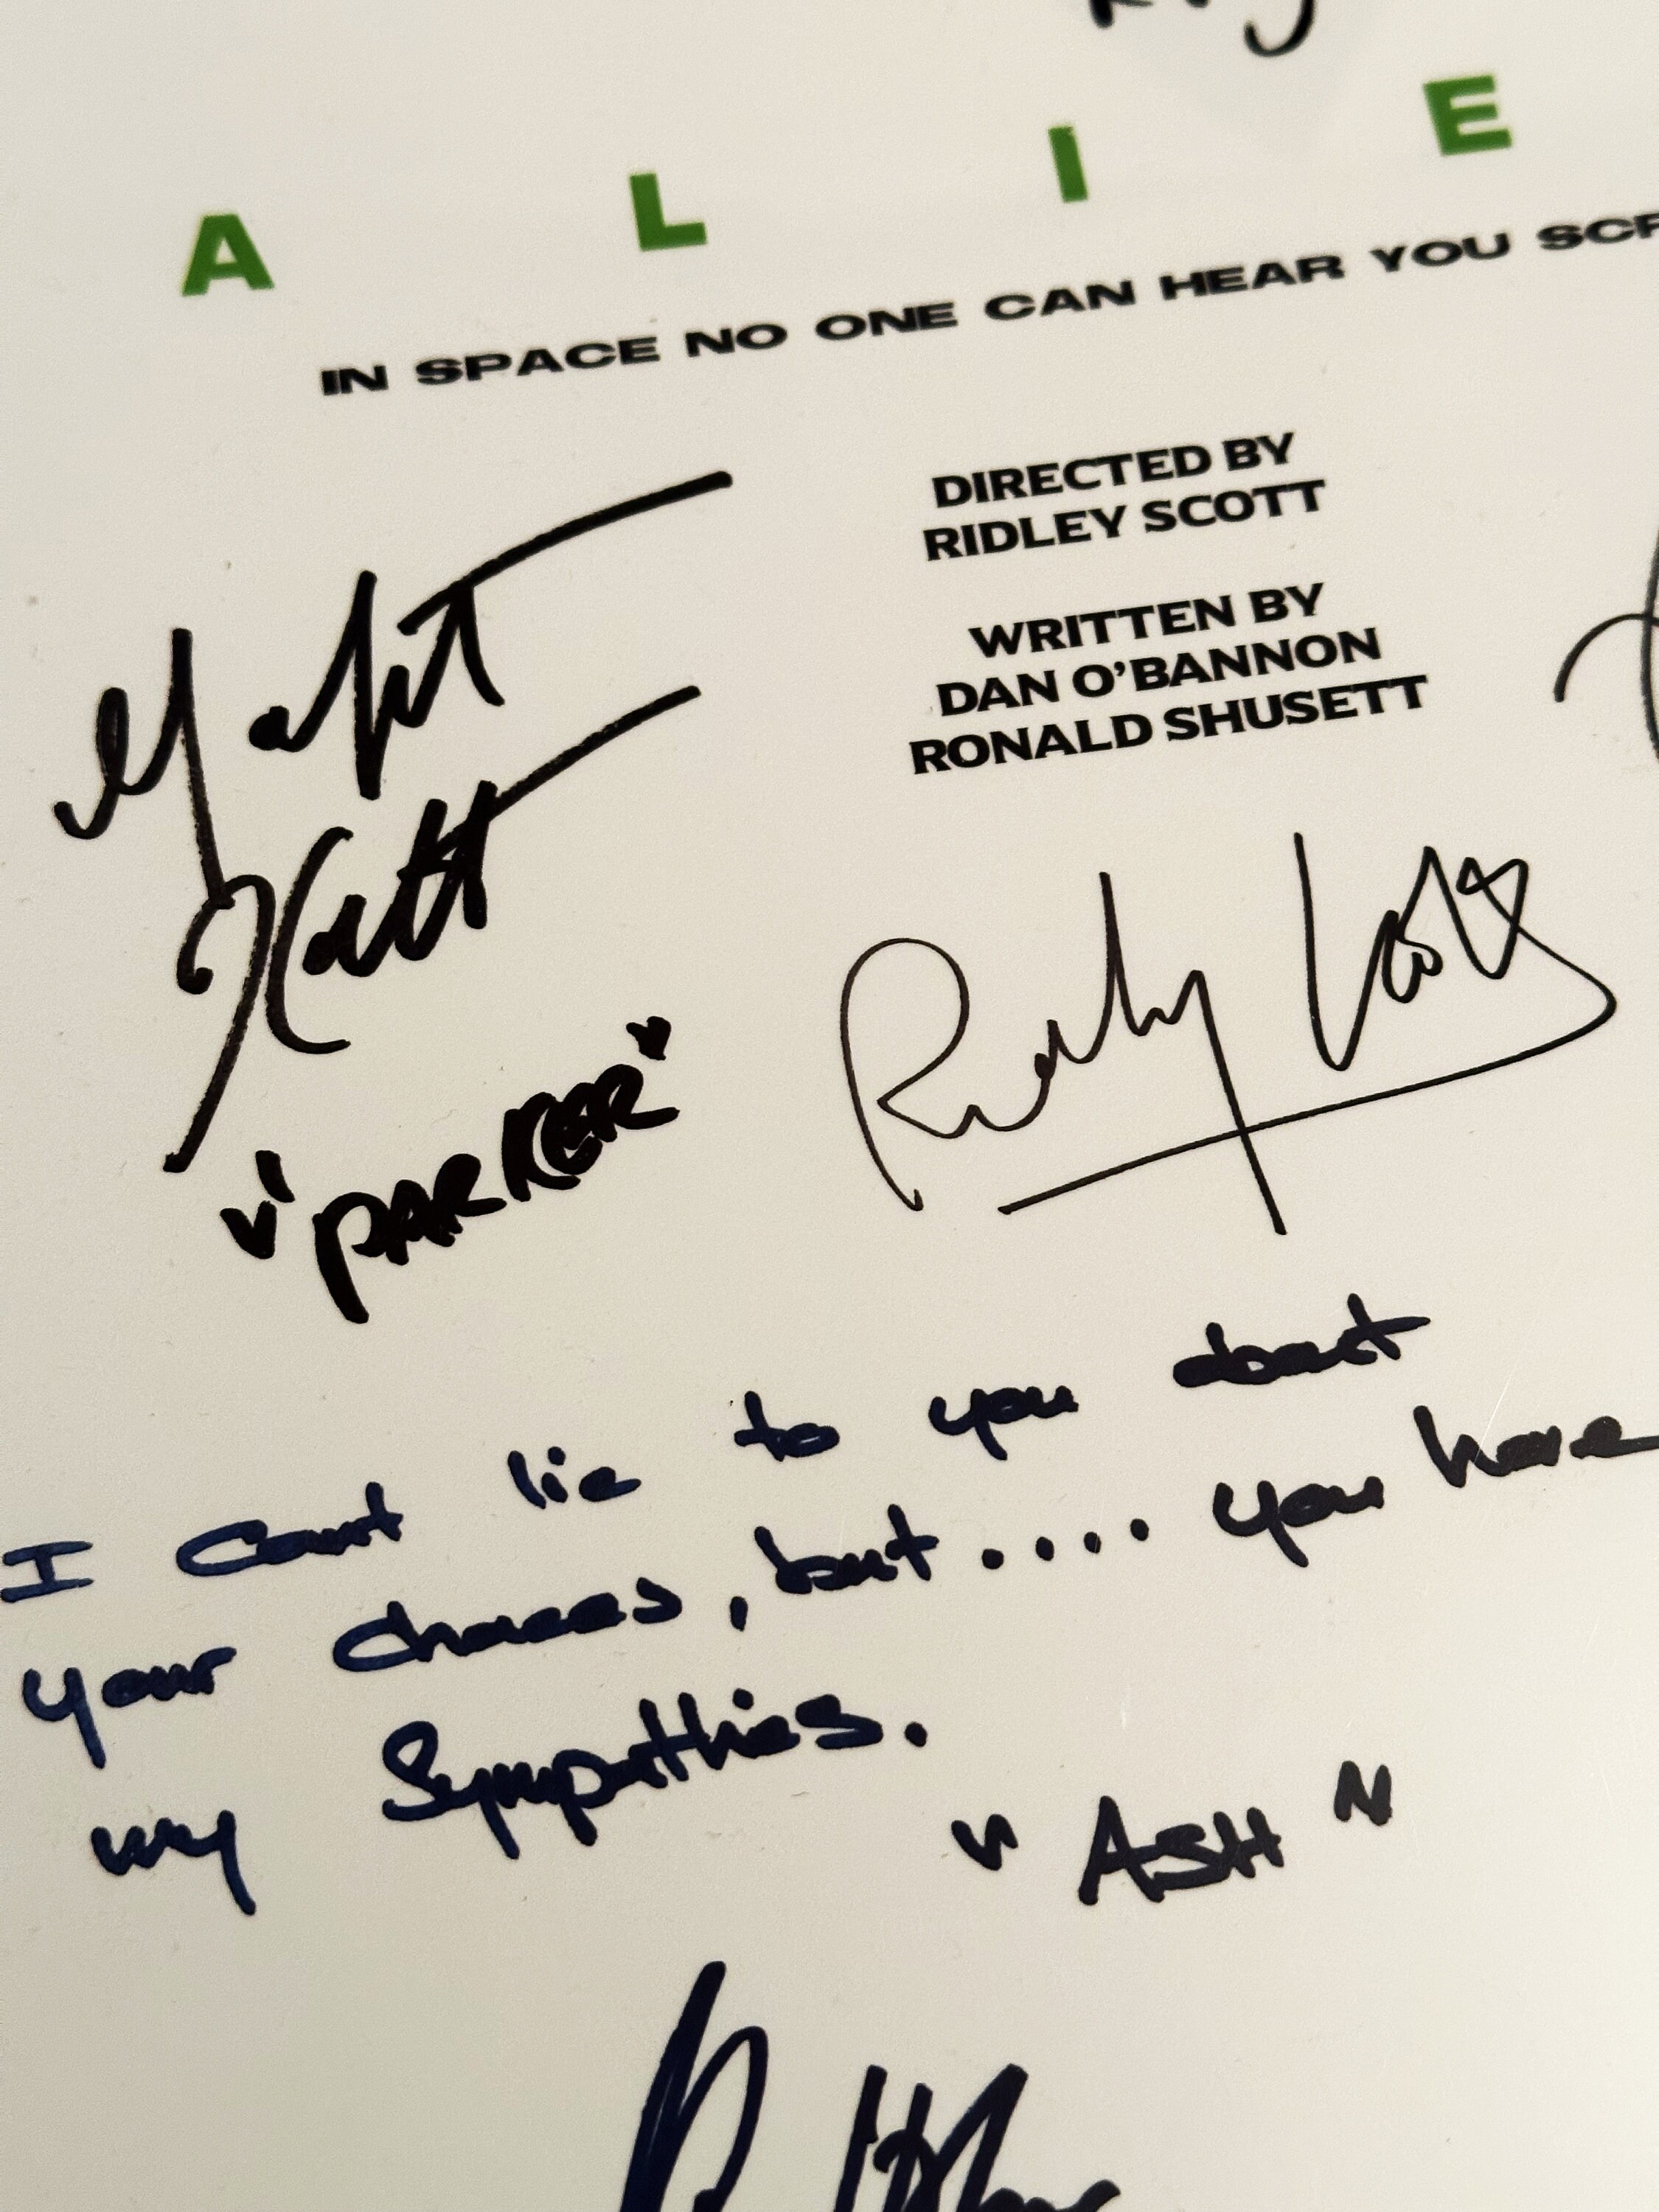 A L I E
IN SPACE NO ONE CAN HEAR YOU SCR
DIRECTED BY
RIDLEY SCOTT
WRITTEN BY
DAN O'BANNON
RONALD SHUSETT
Yaphet
Kotto
"PARKER"
Ridley Scott
I cant lie to you about
your chances, but.... you have
my Sympathies.
"ASH"